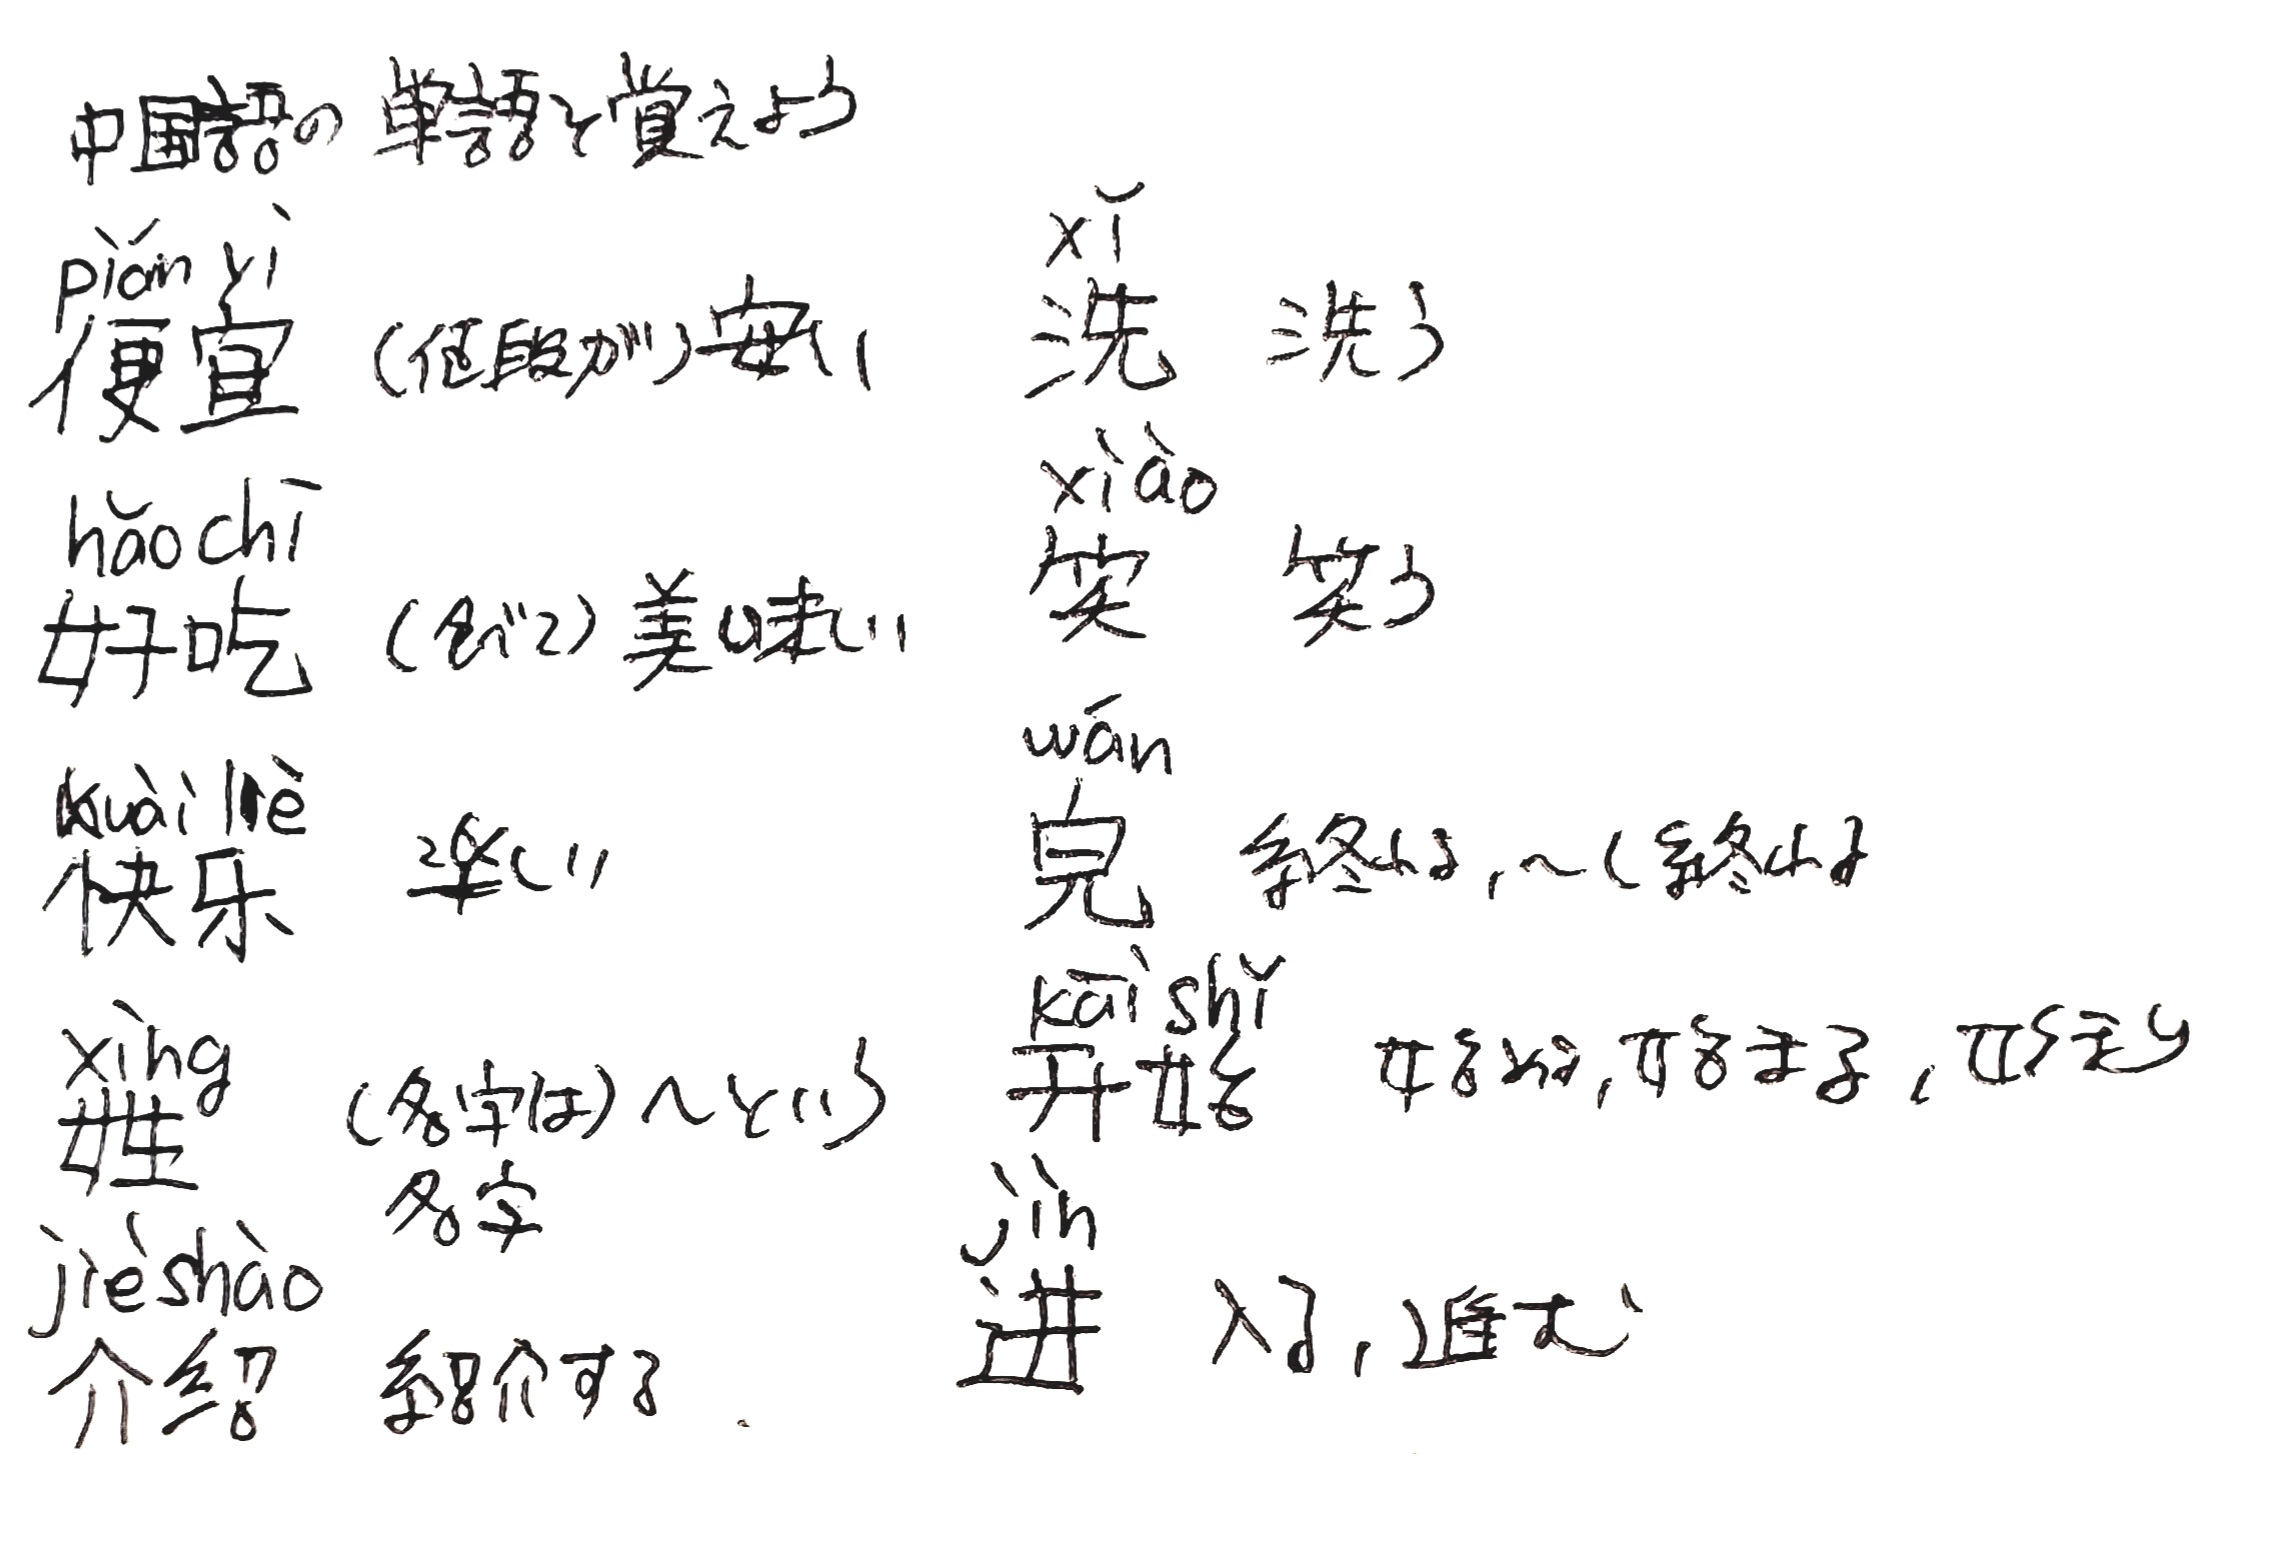 中国語の 単語を覚えよう
piǎn yì
便宜 (値段が)安い
hǎo chī
好吃 (食べて)美味しい
kuài lè
快乐 楽しい
xìng
姓 (名字は)〜という
名字
jièshào
介绍 紹介する
xǐ
洗 洗う
xiào
笑 笑う
wán
完 終わる,〜し終わる
kāi shǐ
开始 始める,始まる,
jìn
进 入る,進む